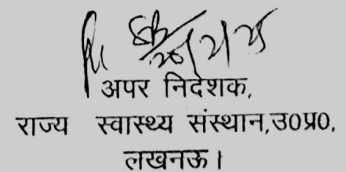 अपर निदेशक,
राज्य स्वास्थ्य संस्थान,उ0प्र0,
लखनऊ।